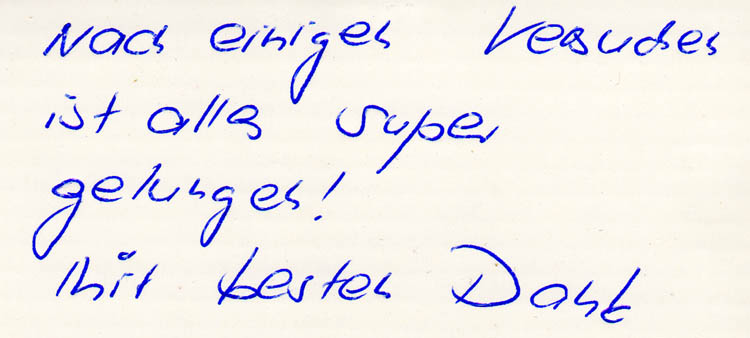 Nach einigen Versuchen
ist alles super
gelungen!
Mit besten Dank